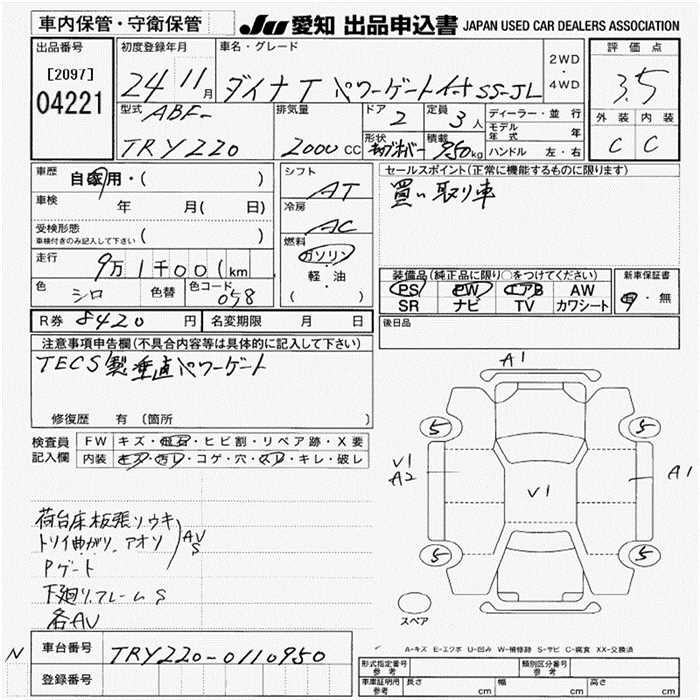 車内保管・守衛保管
JU 愛知 出品申込書 JAPAN USED CAR DEALERS ASSOCIATION
出品番号
[2097]
04221
初度登録年月
24 11月
車名・グレード
ダイナT パワーゲート付 SS-JL
2WD
・
4WD
評価点
3.5
外装 内装
C C
型式
ABF-
TRY220
排気量
2000 CC
ドア
2
定員
3人
形状
積載
950kg
ディーラー・並行
モデル年式 年
ハンドル 左・右
車歴
自家用・( )
車検
年 月( 日)
受検形態
車検付きのみ記入して下さい ( )
走行
9万1千001km
色
シロ
色替
色コード
058
シフト
AT
冷房
AC
燃料
ガソリン
軽・油
( )
セールスポイント(正常に機能するものに限ります)
買い取り車
装備品(純正品に限り○をつけてください)
PS PW エアB AW
SR ナビ TV カワシート
新車保証書
有・無
後日品
R券 8420 円
名変期限 月 日
注意事項申告欄(不具合内容等は具体的に記入して下さい)
TECS製垂直パワーゲート
修復歴 有 (箇所
検査員記入欄
FW キズ・飛石・ヒビ割・リペア跡・X要
内装 キズ・汚レ・コゲ・穴・スレ・キレ・破レ
荷台床板張ソウキ
トリイ曲がり、アオリ
AV
S
Pゲート
下廻り、フレームS
各AV
A1
5
5
V1
A2
V1
A1
5
5
スペア
A-キズ E-エクボ U-凹み W-補修跡 S-サビ C-腐食 XX-交換済
N
車台番号
TRY220-0110950
登録番号
形式指定番号
参考
類別区分番号
参考
車庫証明用
参考
長さ cm
幅 cm
高さ cm